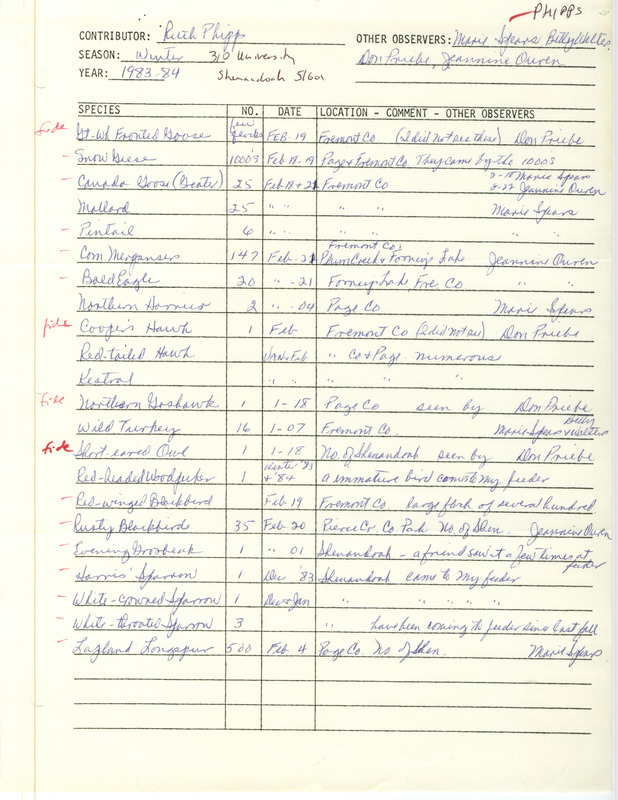 PHIPPS
CONTRIBUTOR: Ruth Phipps OTHER OBSERVERS: Marie Spears, Billy Walters,
SEASON: Winter 310 University Don Priebe, Jeannine Ouren
YEAR: 1983-84 Shenandoah 51601
SPECIES NO. DATE LOCATION - COMMENT - OTHER OBSERVERS
fide Gt-Wh Fronted Goose few FEB-19 Fremont Co (I did not see these) Don Priebe
- Snow Geese 1000's Feb 18-19 Page & Fremont Co. They came by the 1000s
- Canada Goose (Greater) 25 Feb 18 & 21 Fremont Co 2-18 Marie Spears
2-22 Jeannine Ouren
Mallard 25 " " " " Marie Spears
- Pintail 6 " " " " "
- Com Mergansers 147 Feb-21 Fremont Co:
Plum Creek & Forneys Lake Jeannine Ouren
- Bald Eagle 20 " -21 Forneys Lake, Fre. Co. " "
Northern Harrier 2 " -04 Page Co Marie Spears
fide Cooper's Hawk 1 Feb Fremont Co (I did not see) Don Priebe
Red-tailed Hawk JAN & Feb " Co & Page numerous
Kestral " " " " " "
fide Northern Goshawk 1 1-18 Page Co seen by Don Priebe
Wild Turkey 16 1-07 Fremont Co. Marie Spears & Billy Walters
fide Short-eared Owl 1 1-18 No. of Shenandoah seen by Don Priebe
Red-headed Woodpecker 1 Winter '83 & '84 a immature bird comes to my feeder
- Red-winged Blackbird Feb 19 Fremont Co. large flock of several hundred
- Rusty Blackbirds 35 Feb 20 Pierce Cr. Co. Park No. of Shen. Jeannine Ouren
- Evening Grosbeak 1 " 01 Shenandoah - a friend saw it a few times at
feeder
- Harris' Sparrow 1 Dec '83 Shenandoah came to my feeder
- White-crowned Sparrow 1 Dec & Jan " " " " "
- White-throated Sparrow 3 " have been coming to feeder since last fall
- Lapland Longspur 500 Feb 4 Page Co. No. of Shen. Marie Spears